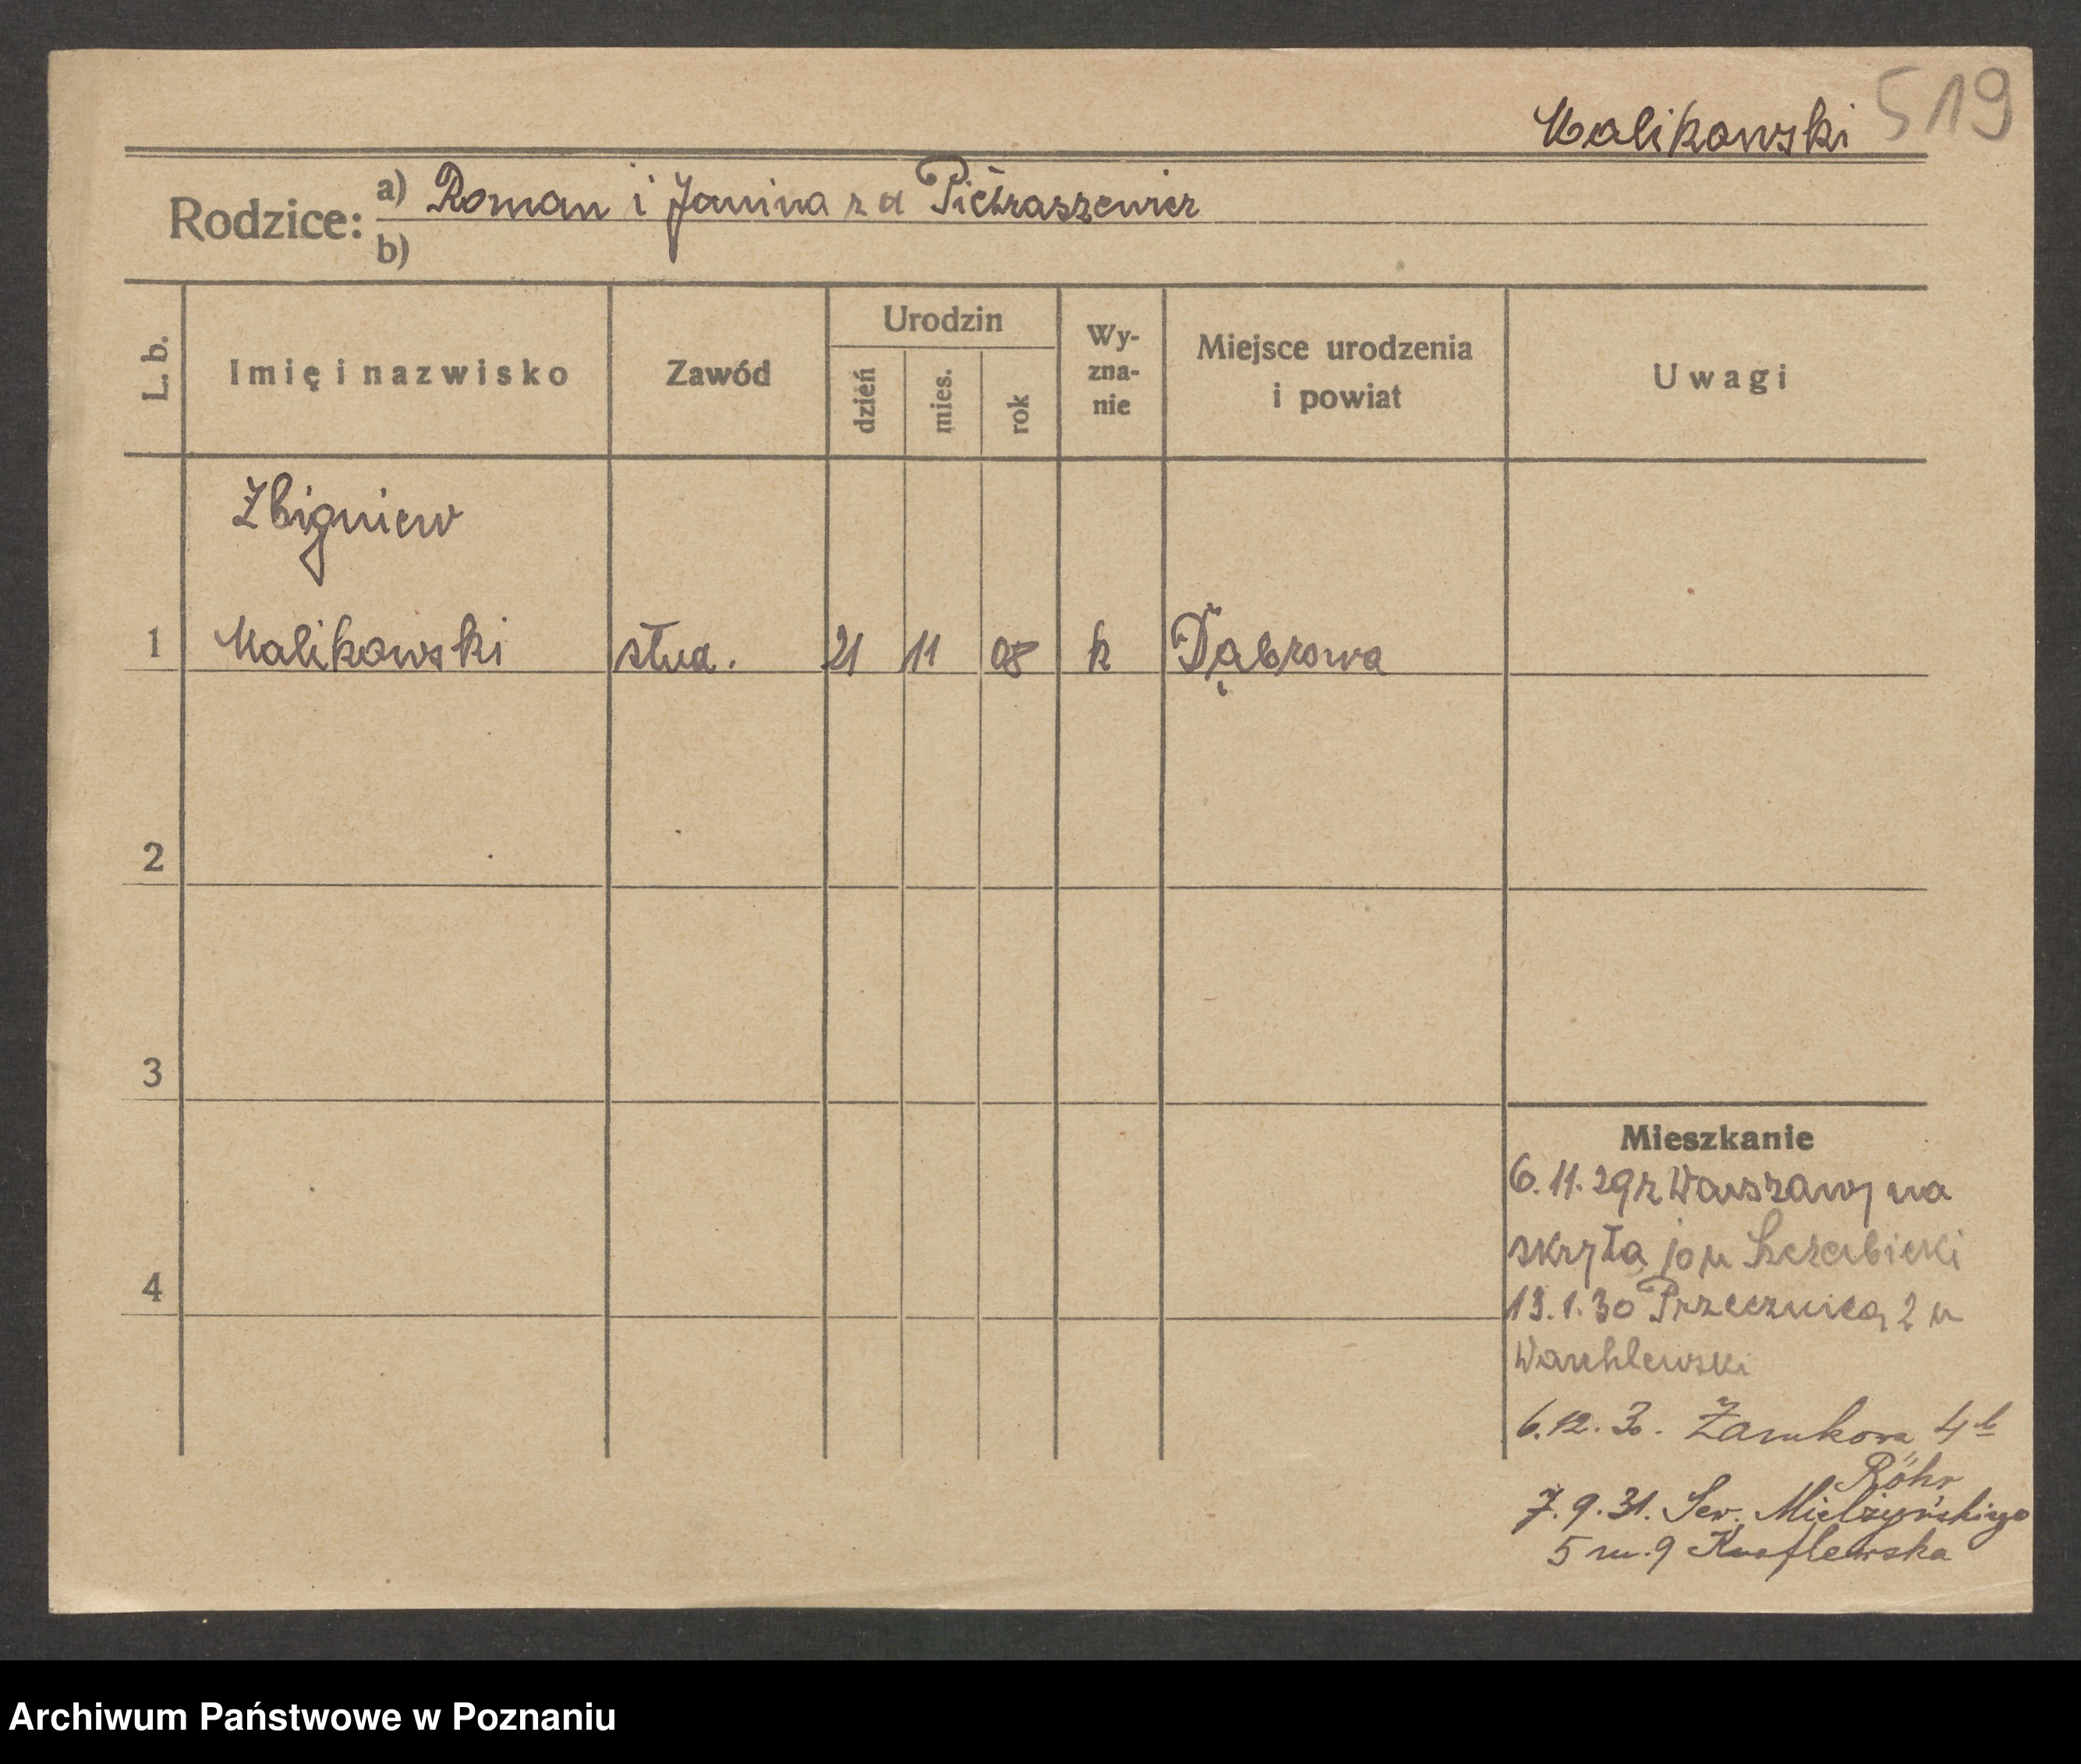 519
Malikowski
Rodzice: a) Roman i Janina z d Pietraszewicz
b)
L. b.
Imię i nazwisko
Zawód
Urodzin
dzień
mies.
rok
Wy-
zna-
nie
Miejsce urodzenia
i powiat
Uwagi
Zbigniew
1 Malikowski stud. 21 11 08 k Dąbrowa
2
3
4
Mieszkanie
6.11.29 z Warszawy na
skryta 10 u
13.1.30 Przecznica 2 u
6.12.30. Zamkowa 4b
Röhr
7.9.31. Sew. Mielżyńskiego
5 m. 9
Archiwum Państwowe w Poznaniu